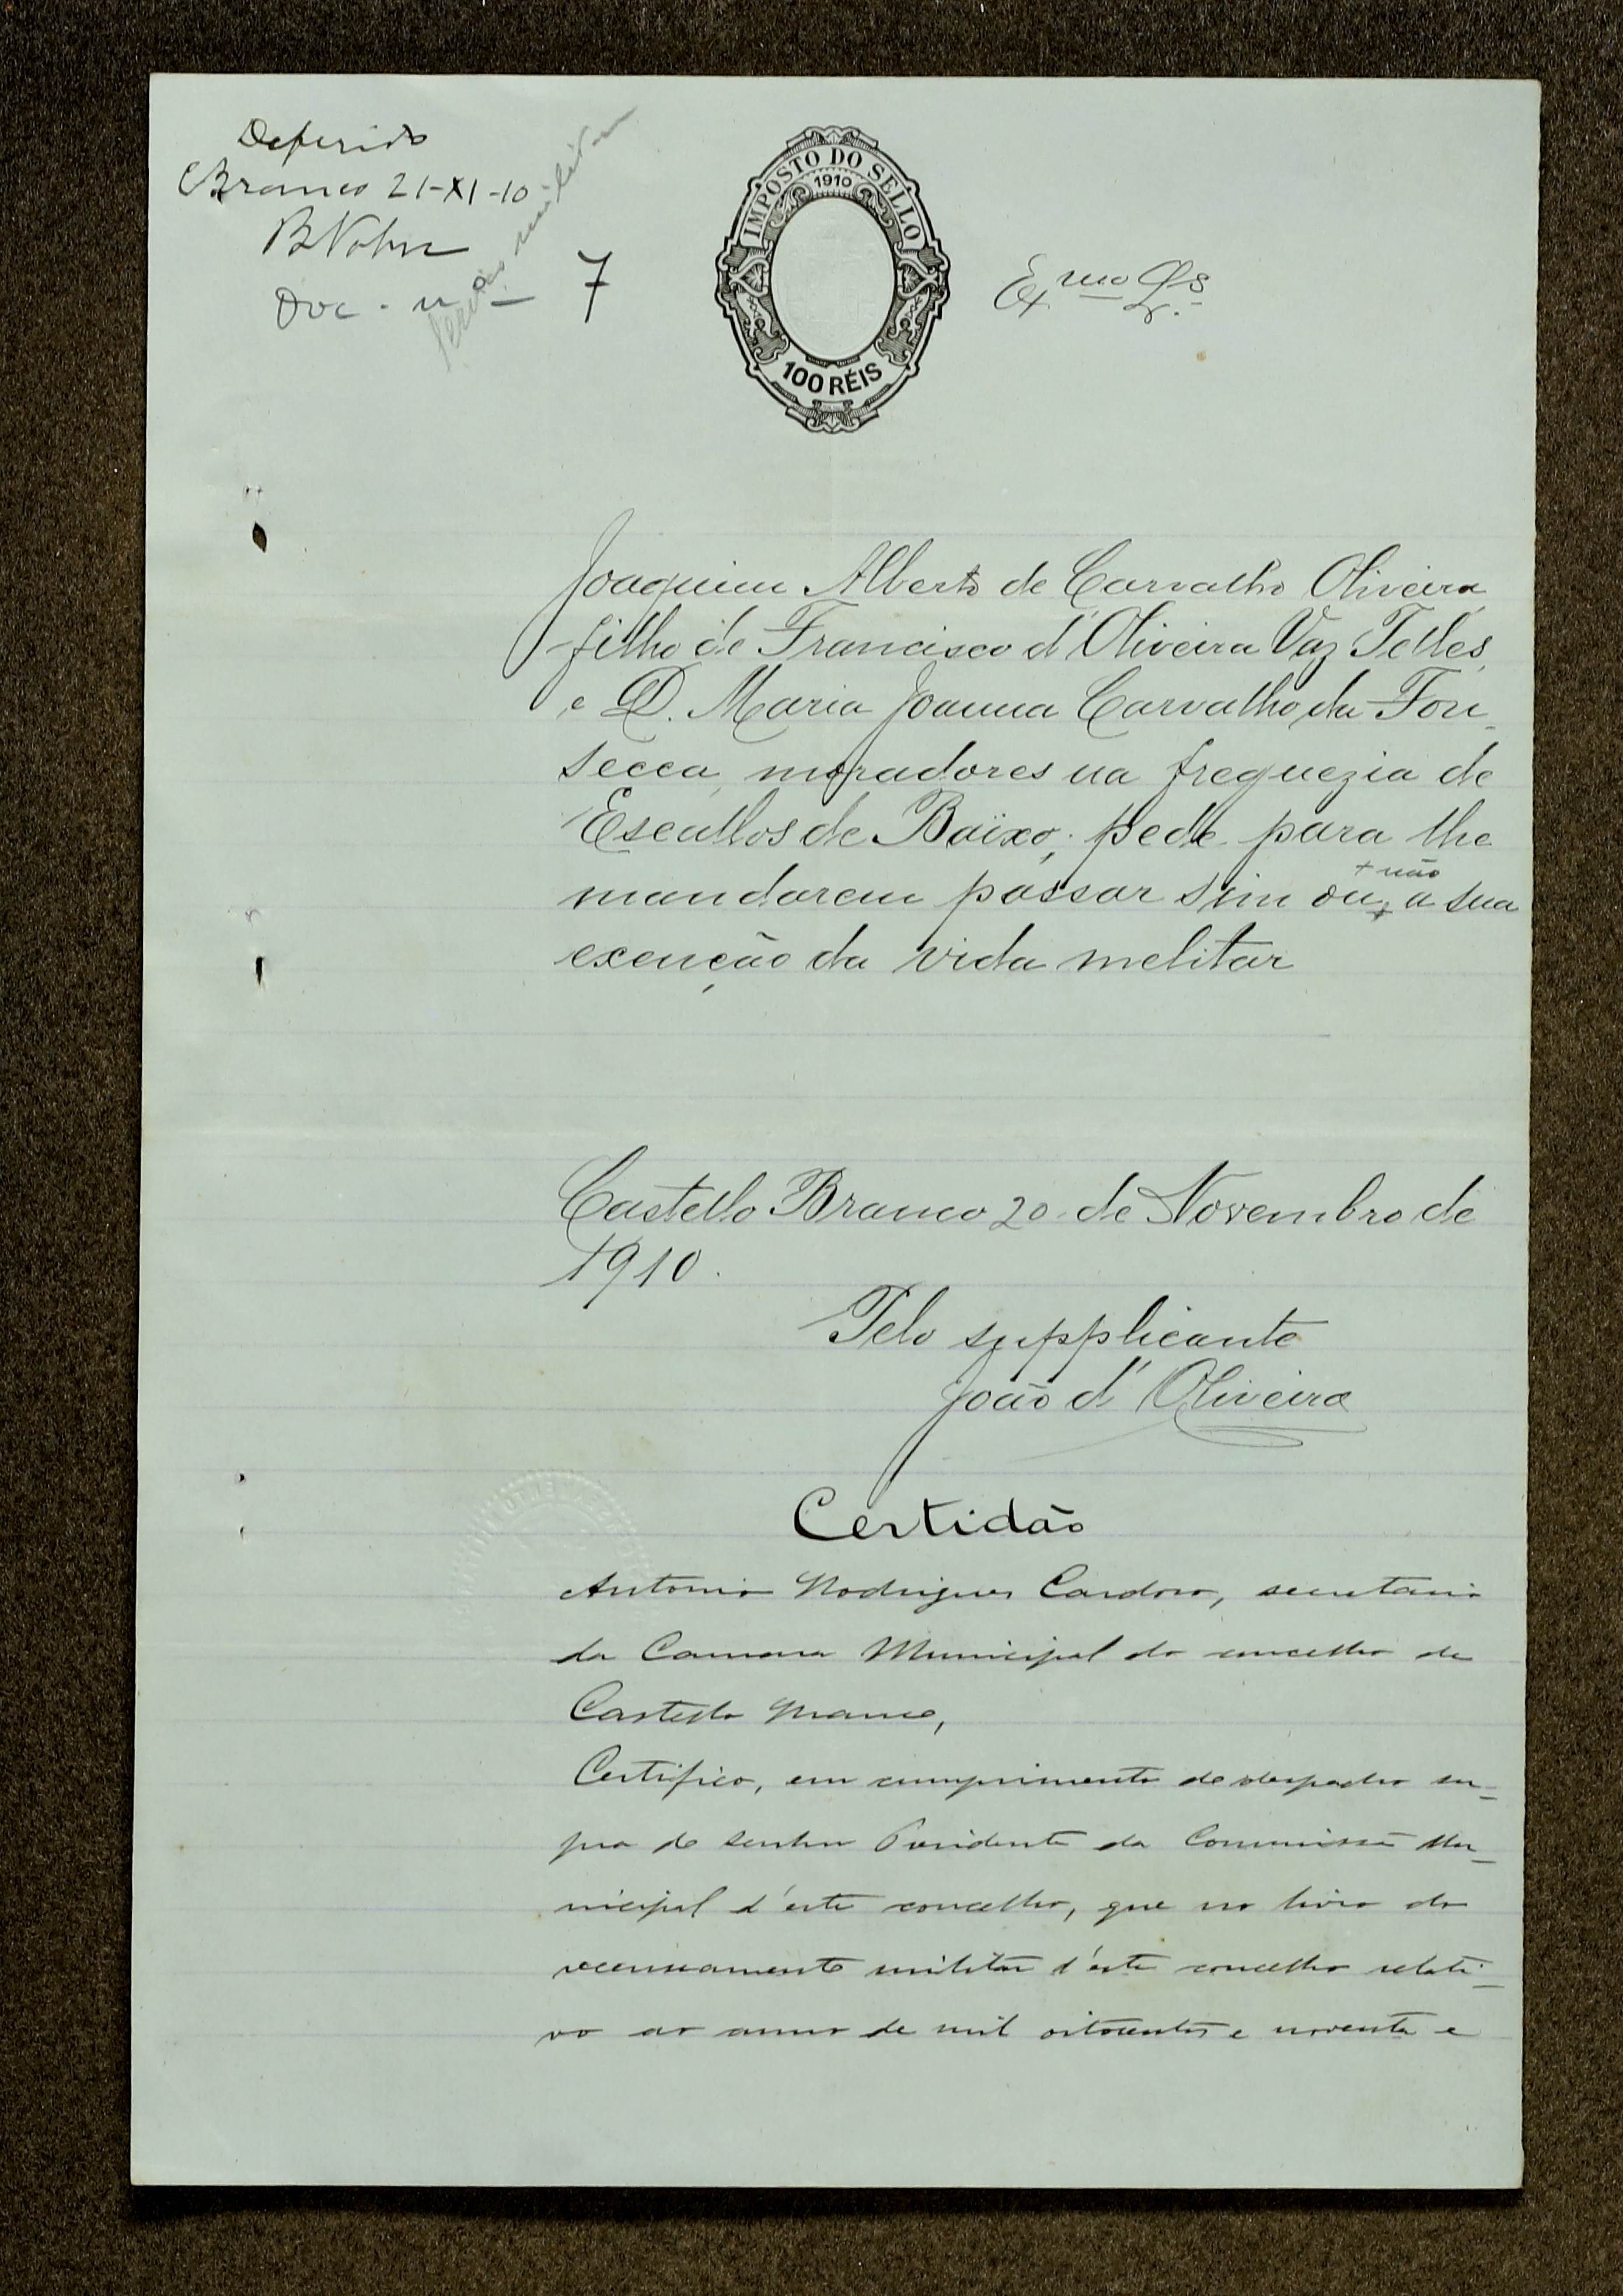 Deferido
Branco 21-XI-10
Doc. nº 7
serviço militar
IMPOSTO DO SELLO
1910
100 RÉIS
Ex.mo Sr.
Joaquim Alberto de Carvalho Oliveira
filho de Francisco d'Oliveira Vaz Telles,
e D. Maria Joanna Carvalho da Fon-
secca, moradores na freguezia de
Escallos de Baixo; pede para lhe
mandarem passar sim ou + não + a sua
exenção da vida melitar
Castello Branco 20 de Novembro de
1910.
Pelo supplicante
João d'Oliveira
Certidão
Antonio Rodrigues Cardoso, secretario
da Camara Municipal do concelho de
Castello Branco,
Certifico, em cumprimento do despacho su-
pra do senhor Presidente da Commissão Mu-
nicipal d'este concelho, que no livro do
recenseamento militar d'este concelho relati-
vo ao anno de mil oitocentos e noventa e